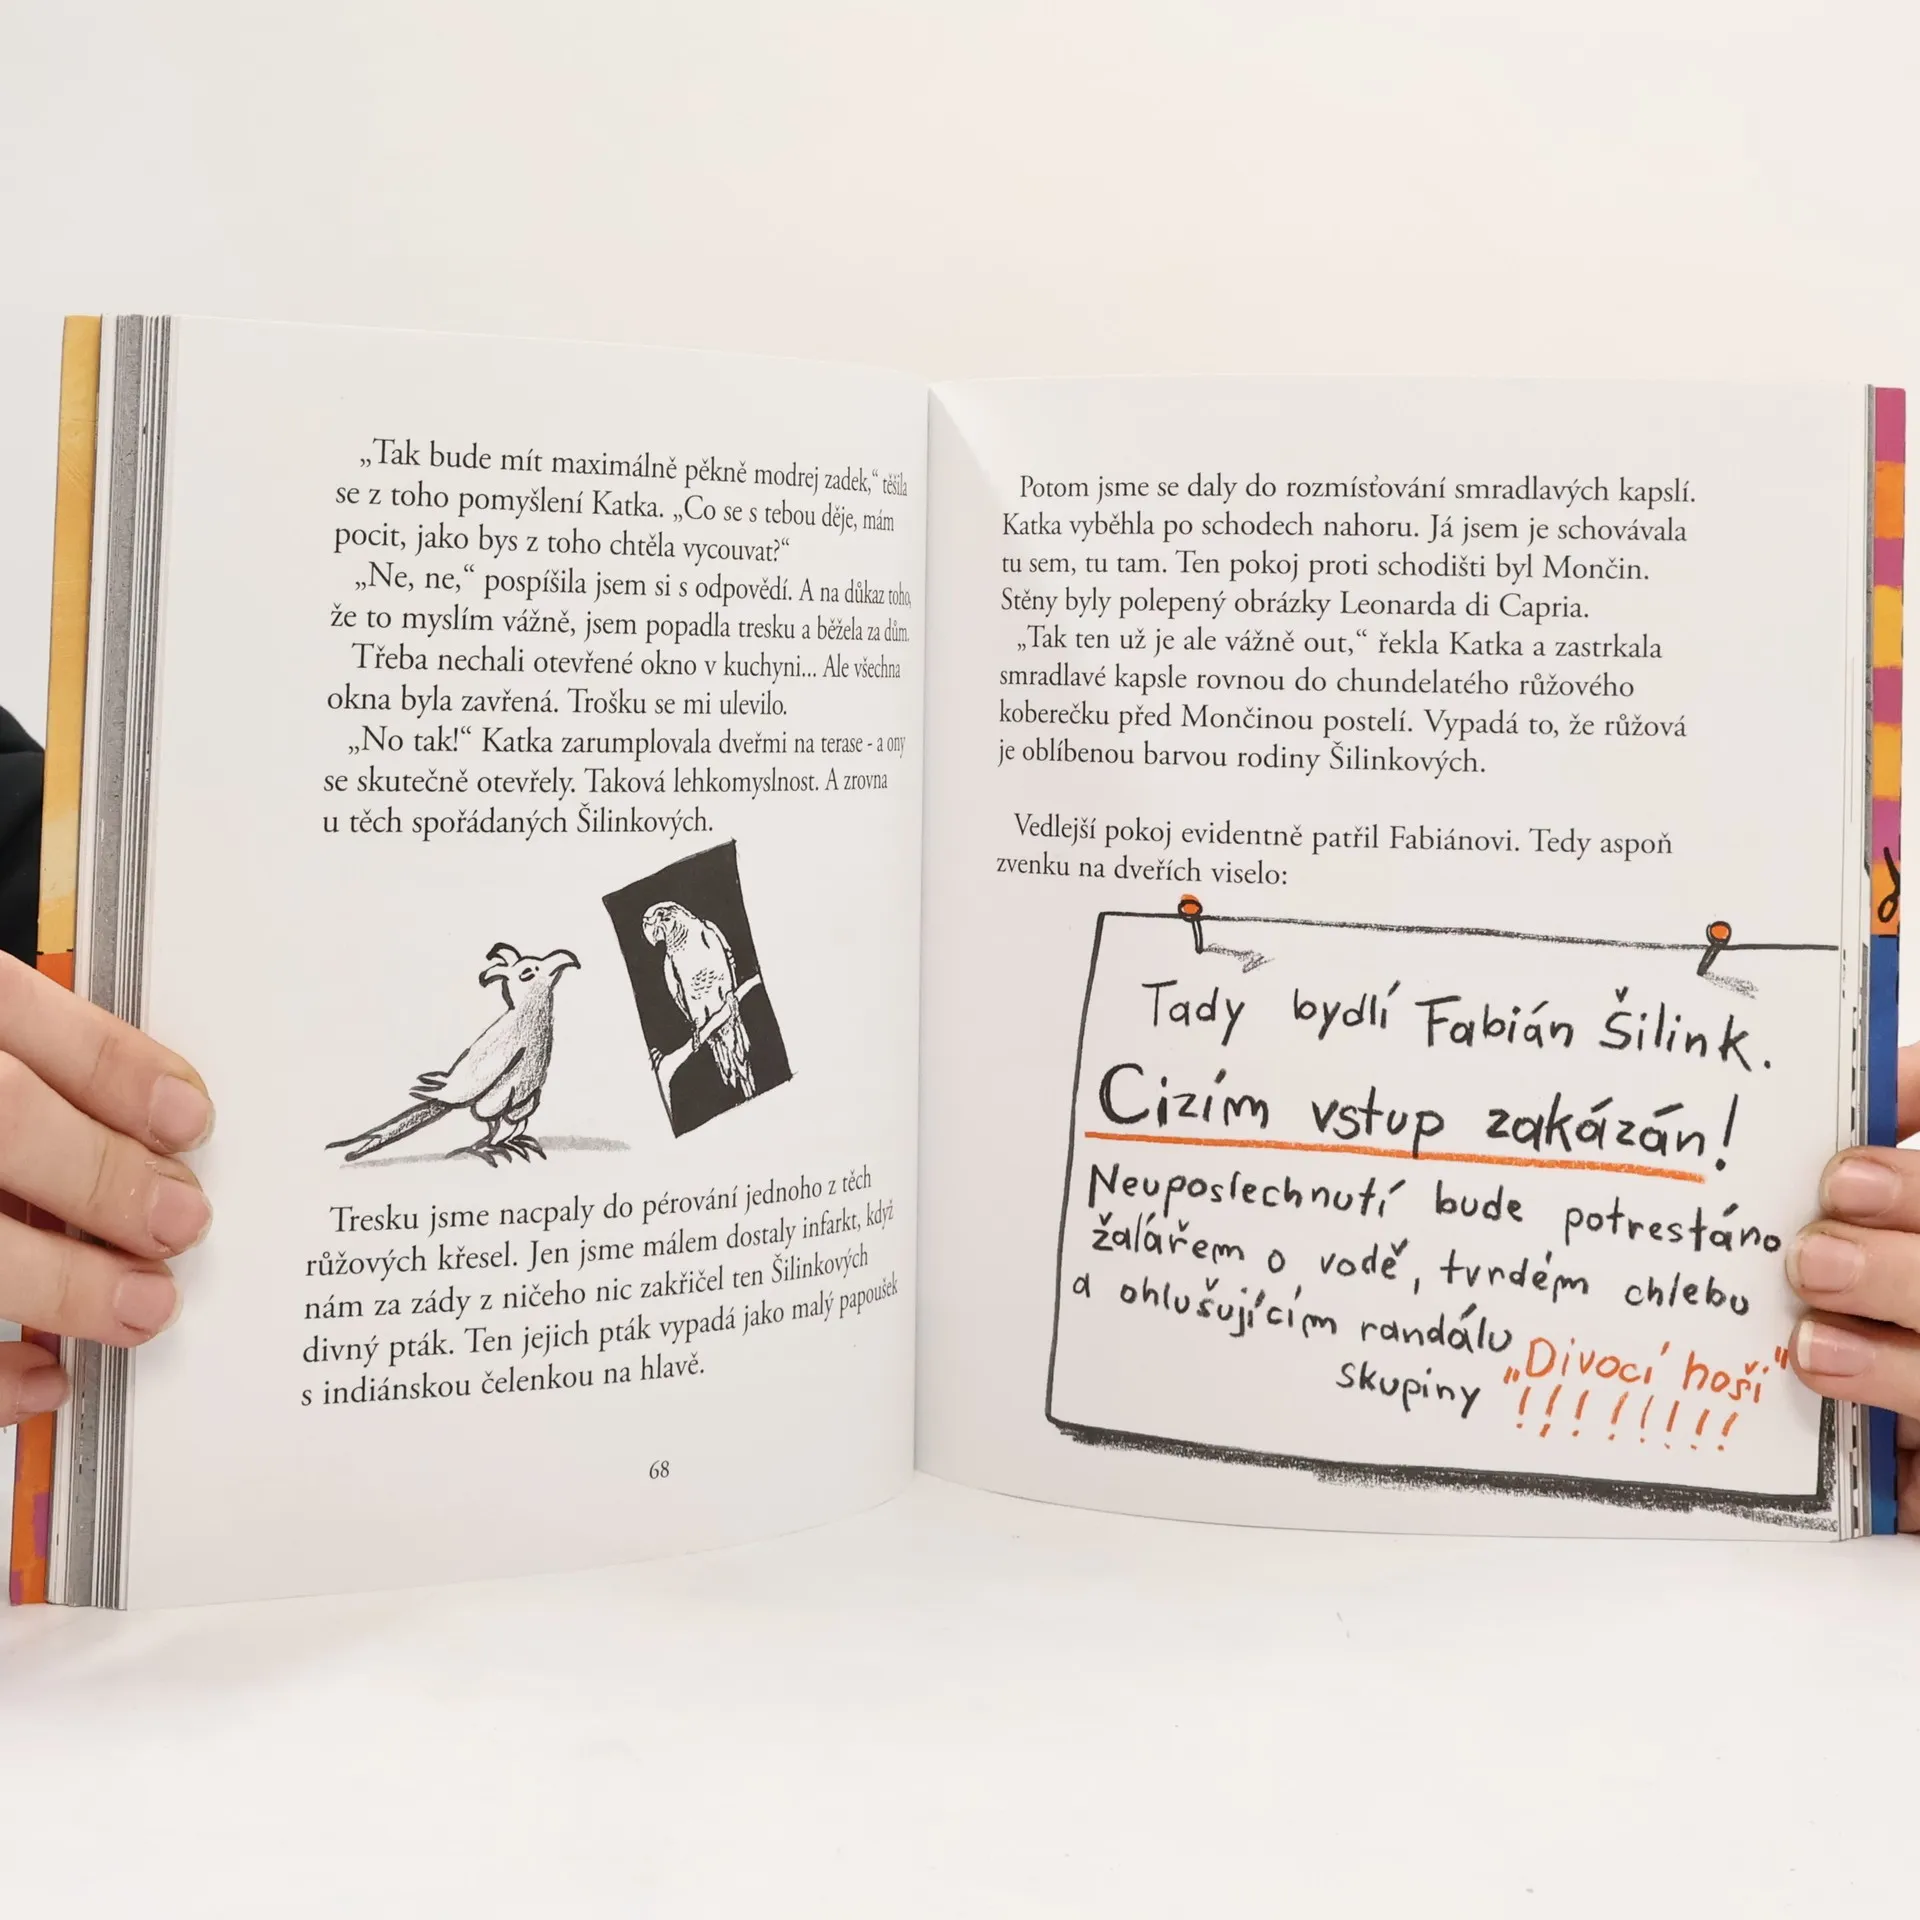 „Tak bude mít maximálně pěkně modrej zadek,“ těšila
se z toho pomyšlení Katka. „Co se s tebou děje, mám
pocit, jako bys z toho chtěla vycouvat?“
„Ne, ne,“ pospíšila jsem si s odpovědí. A na důkaz toho,
že to myslím vážně, jsem popadla tresku a běžela za dům.
Třeba nechali otevřené okno v kuchyni... Ale všechna
okna byla zavřená. Trošku se mi ulevilo.
„No tak!“ Katka zarumplovala dveřmi na terase - a ony
se skutečně otevřely. Taková lehkomyslnost. A zrovna
u těch spořádaných Šilinkových.
Tresku jsme nacpaly do pérování jednoho z těch
růžových křesel. Jen jsme málem dostaly infarkt, když
nám za zády z ničeho nic zakřičel ten Šilinkových
divný pták. Ten jejich pták vypadá jako malý papoušek
s indiánskou čelenkou na hlavě.
68
Potom jsme se daly do rozmísťování smradlavých kapslí.
Katka vyběhla po schodech nahoru. Já jsem je schovávala
tu sem, tu tam. Ten pokoj proti schodišti byl Mončin.
Stěny byly polepený obrázky Leonarda di Capria.
„Tak ten už je ale vážně out,“ řekla Katka a zastrkala
smradlavé kapsle rovnou do chundelatého růžového
koberečku před Mončinou postelí. Vypadá to, že růžová
je oblíbenou barvou rodiny Šilinkových.
Vedlejší pokoj evidentně patřil Fabiánovi. Tedy aspoň
zvenku na dveřích viselo:
Tady bydlí Fabián Šilink.
Cizím vstup zakázán!
Neuposlechnutí bude potrestáno
žalářem o vodě, tvrdém chlebu
a ohlušujícím randálu
skupiny „Divocí hoši“
!!!!!!!!